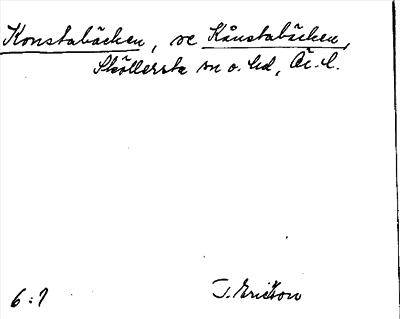 Konstabäcken, se Kånstabäcken,
Sköllersta sn o. hd, Ör. l.
6:7 J. Ericson